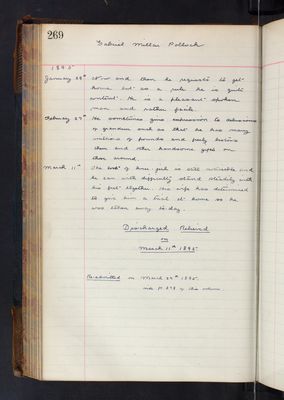 269
Gabriel Millar Pollock
1895
January 28th Now and then he requests to get
home but as a rule he is quite
content. He is a pleasant spoken
man and rather facile.
February 27th He sometimes gives expression to delusions
of grandeur such as that he has many
millions of pounds and freely bestows
them and other handsome gifts on
those around.
March 11th The loss of knee jerk is still noticeable and
he can with difficulty stand steadily with
his feet together. His wife has determined
to give him a trial at home so he
was taken away to-day.
Discharged, Relieved
on
March 11th 1895
Readmitted on March 29th 1895.
vide p. of this volume